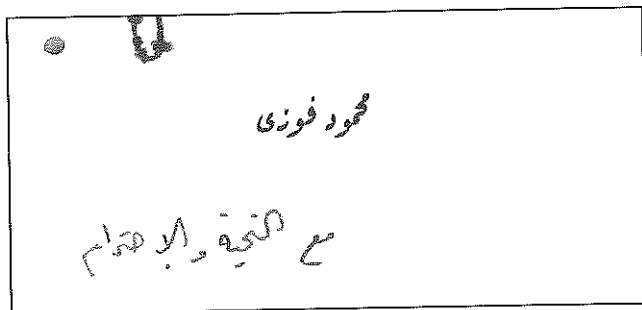 محمود فوزى
مع التحية والاحترام